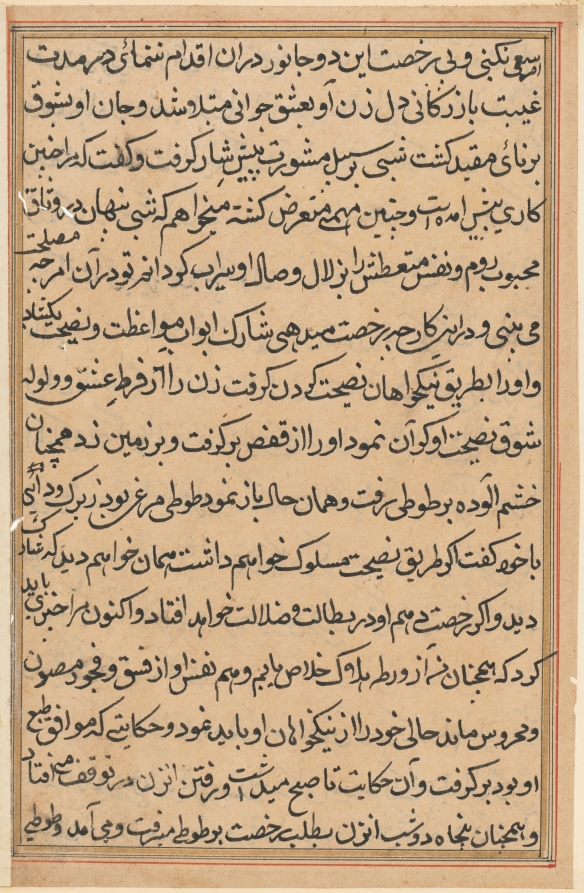 امر سعی نکنی و بی رخصت این دو جانور دران اقدام ننمائی در مدت
غیبت بازرگانی دل زن او بعشق جوانی مبتلا شد و جان او بشوق
برنائ مقید کشت شبی بر سبیل مشورت پیش شارک رفت و کفت که مرا چنین
کاری پیش امده است و چنین مهمی متعرض کشته میخواهم که شبی پنهان در وثاق
محبوب روم و نفس متعطش را بزلال وصال او سیراب کردانم تو در آن امر چه مصلحت
می بینی و درین کار چه رخصت میدهی شارک ابواب مواعظت و نصیحت بکشاد
و اورا بطریق نیکخواهان نصیحت کردن کرفت زن را از فرط عشق و ولوله
شوق نصیحت او کران نمود اورا از قفص بر کرفت و بر زمین زد همچنان
خشم الوده بر طوطی رفت و همان حال باز نمود طوطی مرغی بود زیرک و دانای
با خود کفت اکر طریق نصیحت مسلوک خواهم داشت همان خواهم دید که شارک
دید و اکر رخصت دهم او در بطالت و ضلالت خواهد افتاد و اکنون مرا چیزی باید
کرد که همچنان من از ورطه هلاک خلاص یابم و هم نفس او از فسق و فجور مصون
و محروس ماند حالی خود را از نیکخواهان او باید نمود و حکایتی که موافق طبع
او بود بر کرفت و آن حکایت تا صبح میداشت و رفتن ان زن در توقف می افتاد
و همچنان پنجاه دو شب ان زن بطلب رخصت بر طوطی میرفت و می آمد و طوطی